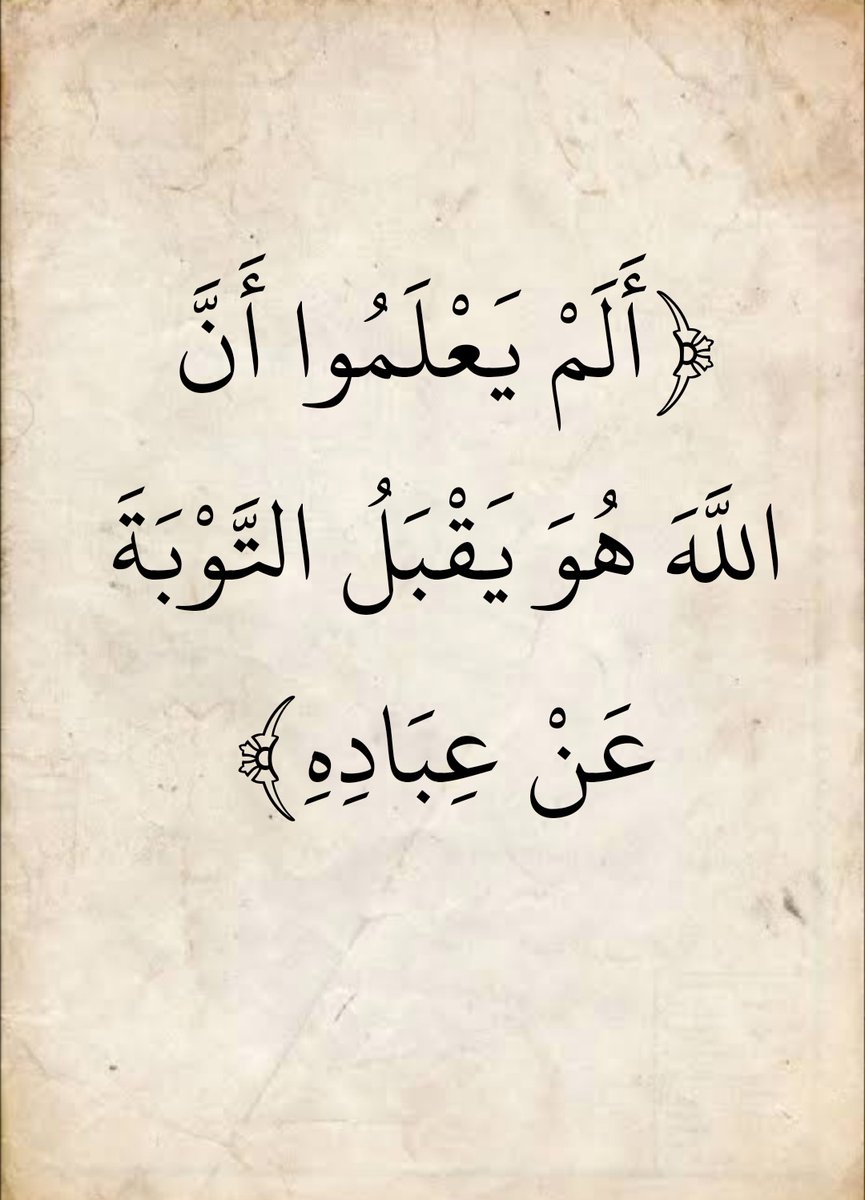 ﴿أَلَمْ يَعْلَمُوا أَنَّ
اللَّهَ هُوَ يَقْبَلُ التَّوْبَةَ
عَنْ عِبَادِهِ﴾